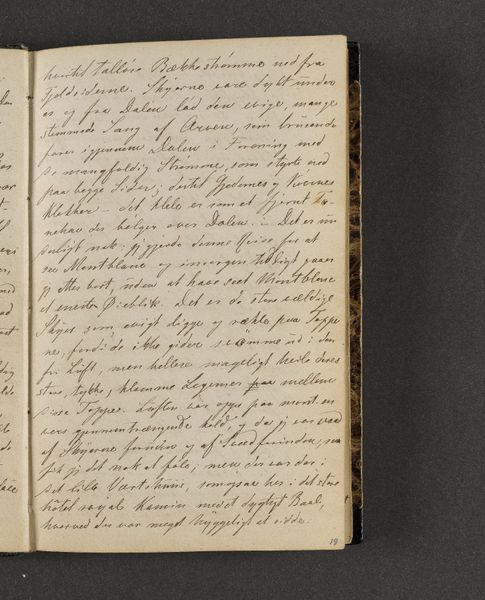 hvortil talløse Bække strømme ned fra
Fjeldsiderne. Skyerne vare dybt under
os og fra Dalen lød den evige, mange
stemmede Sang af Arven, som brusende
farer igjennem Dalen i Forening med
de mangfoldige Strømme, som styrte ned
paa begge Sider; dertil Gjedernes og Køernes
Klokker — det hele er som et fjernt
der bølger over Dalen. — Det er
nok: jeg gjorde denne Reise for at
see Montblanc og imorgen tidligt
jeg atter bort, uden at have seet Montblanc
et eneste Øieblik. Det er de store vældige
Skyer som evigt ligge og række paa Toppe
ne, fordi de ikke gider svømme ud i den
fri Luft, men hellere mageligt hvile deres
store, tykke, klamme Legemer paa mellem
disse Toppe. Luften var oppe paa
gjennemtrængende kold, og da jeg var vaad
af Skyerne forneden og af Sved foroven, saa
fik jeg det nok at føle; men der var dog i
det lille Værtshuus, som ogsaa her i det store
hôtel royal Kamin med et dygtigt Baal,
hvorved der var meget hyggeligt at sidde.
19